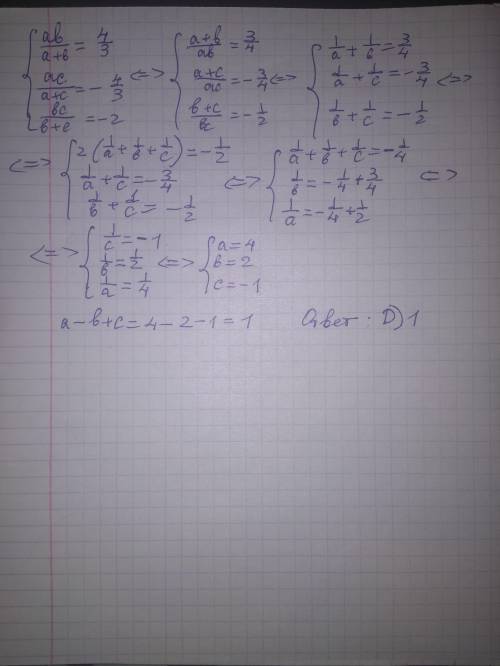 { ab/(a+b) = 4/3
ac/(a+c) = -4/3
bc/(b+c) = -2 <=> { (a+b)/ab = 3/4
(a+c)/ac = -3/4
(b+c)/bc = -1/2 <=> { 1/a + 1/b = 3/4
1/a + 1/c = -3/4
1/b + 1/c = -1/2 <=>
<=> { 2(1/a + 1/b + 1/c) = -1/2
1/a + 1/c = -3/4
1/b + 1/c = -1/2 <=> { 1/a + 1/b + 1/c = -1/4
1/b = -1/4 + 3/4
1/a = -1/4 + 1/2 <=>
<=> { 1/c = -1
1/b = 1/2
1/a = 1/4 <=> { a = 4
b = 2
c = -1
a - b + c = 4 - 2 - 1 = 1 Ответ: D) 1